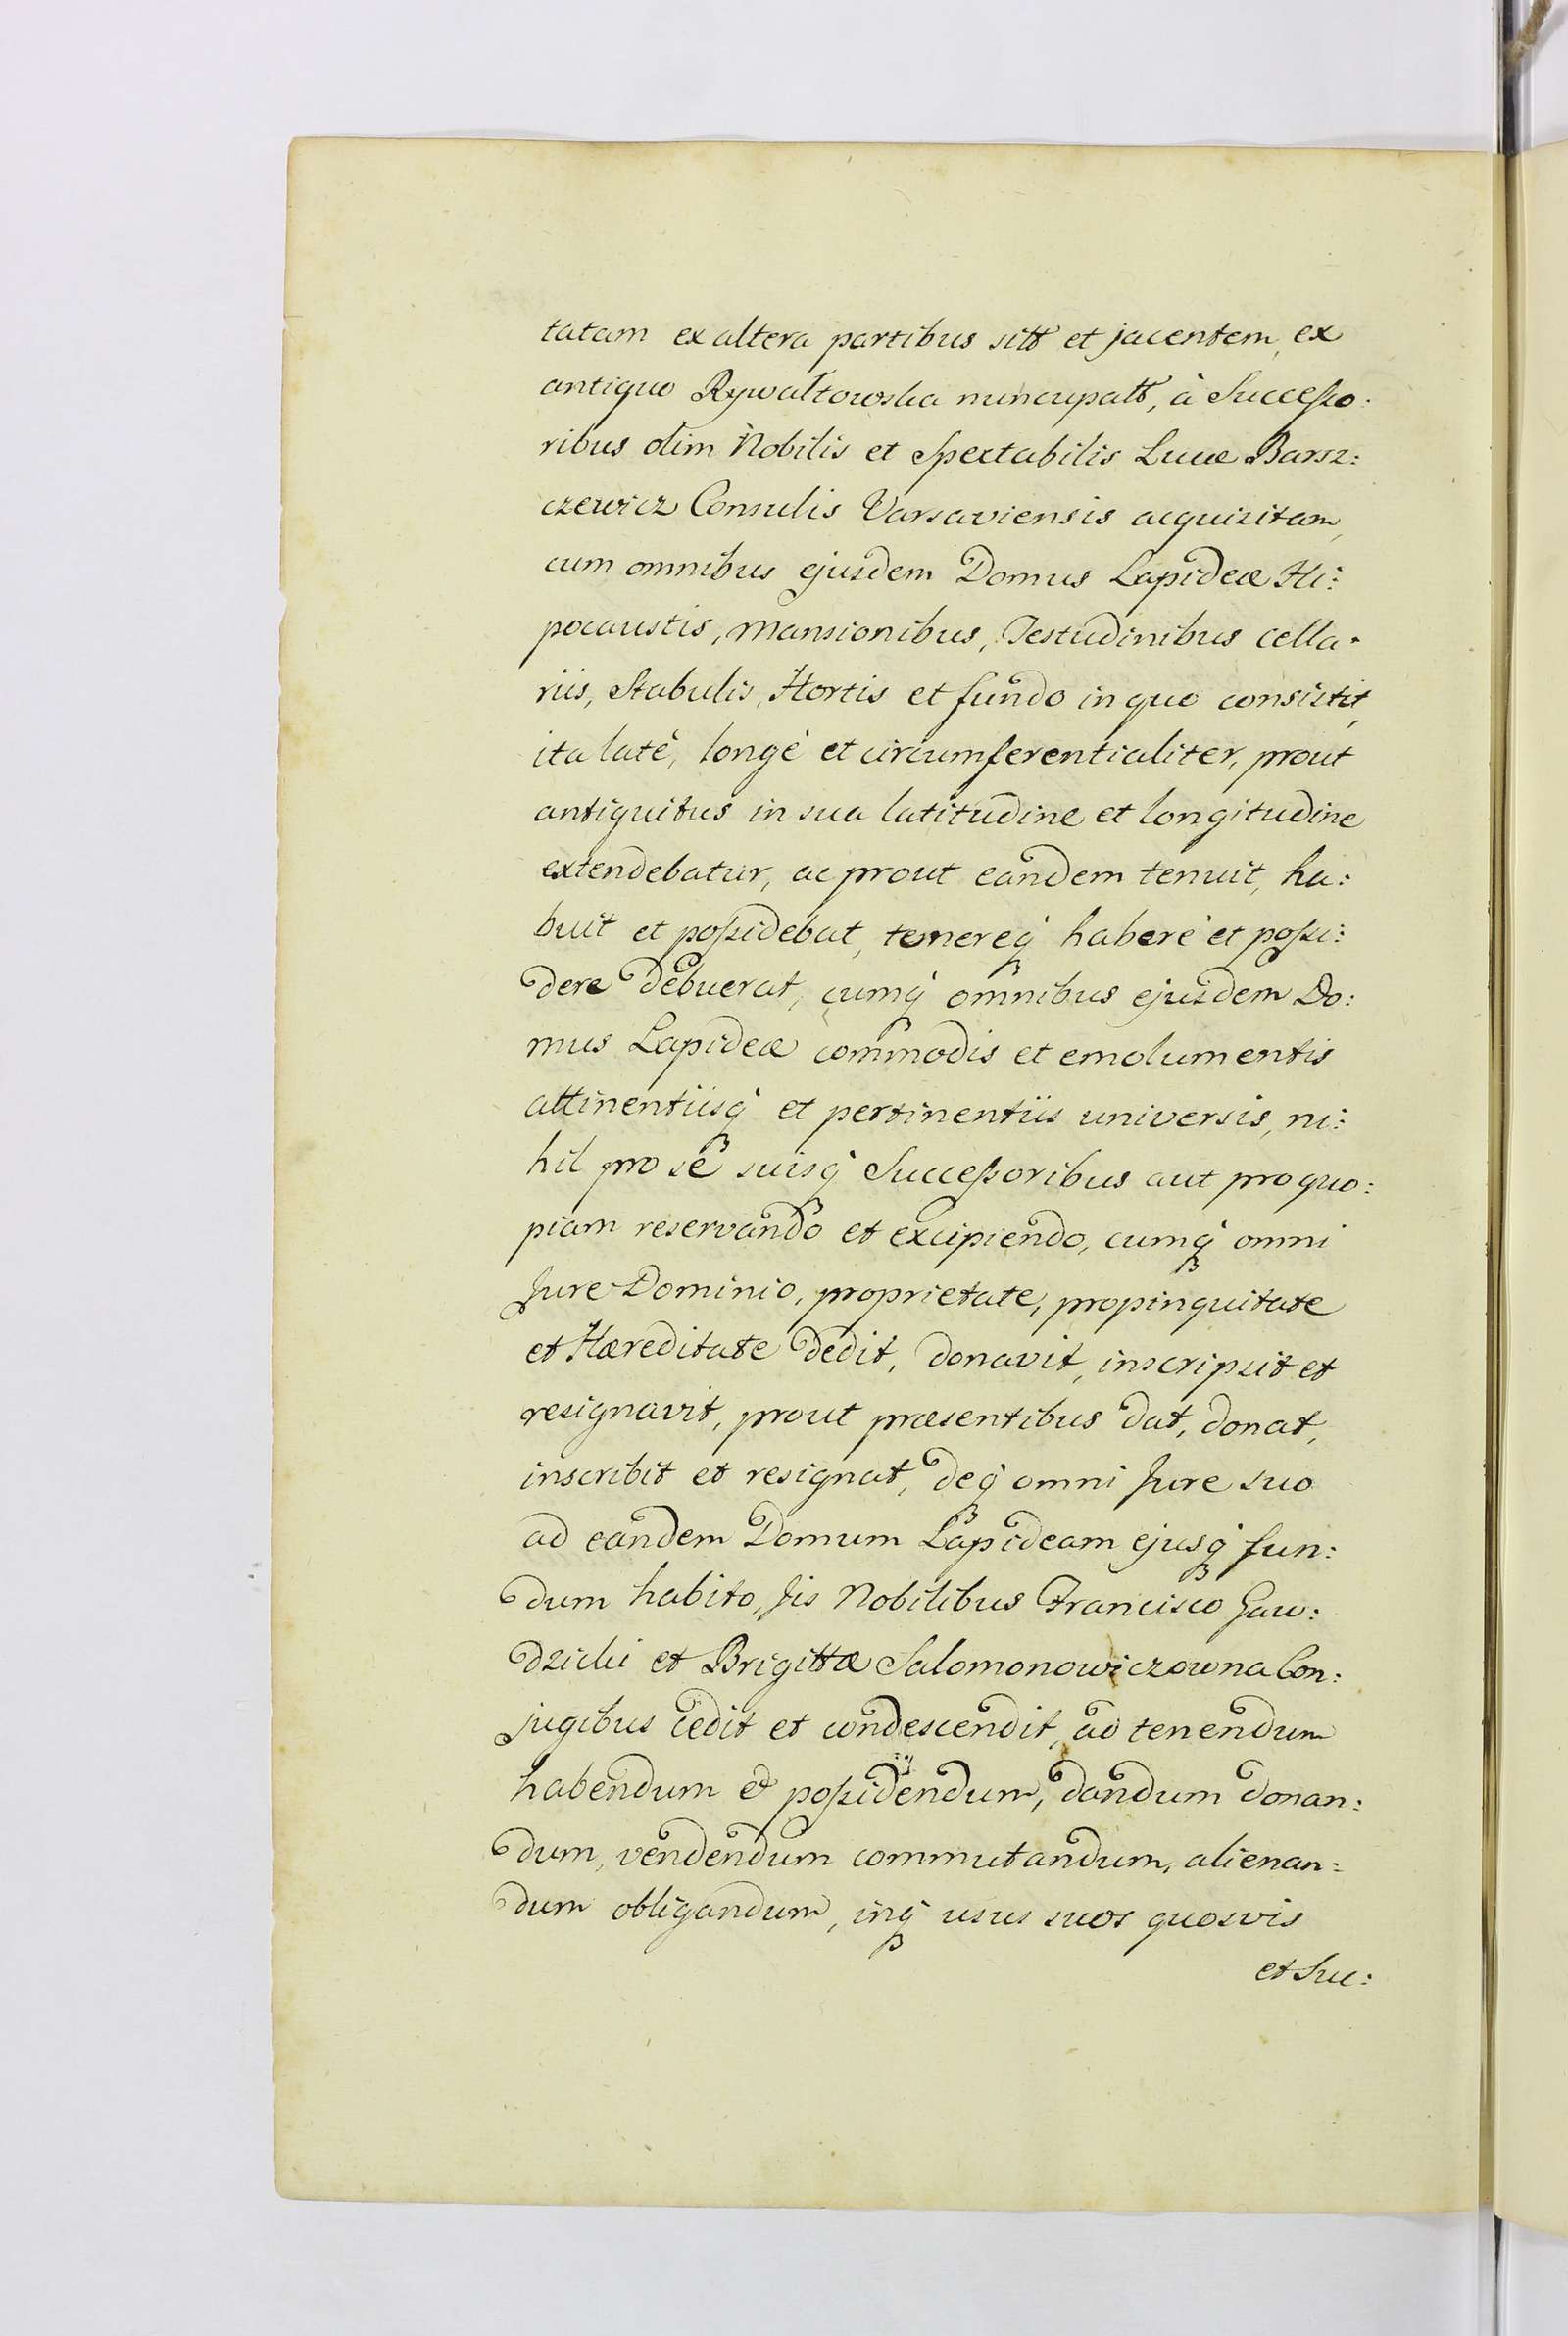 tatam ex altera partibus sitt et jacentem, ex
antiquo Rywałtowska nuncupatt, à Successo:
ribus olim Nobilis et Spectabilis Lucæ Barsz:
czewicz Consulis Varsaviensis acquisitam,
cum omnibus ejusdem Domus Lapideæ Hi:
pocaustis, Mansionibus, Testudinibus cella:
riis, Stabulis, Hortis et fundo in quo consistit,
ita latè, longè et circumferentialiter, prout
antiquitus in sua latitudine et longitudine
extendebatur, ac prout eandem tenuit, ha:
buit et possidebat, tenereq́ habere et possi:
dere debuerat, cumq́ omnibus ejusdem Do:
mus Lapideæ commodis et emolumentis
attinentiisq́ et pertinentiis universis, ni:
hil pro se suisq́ Successoribus aut pro quo:
piam reservando et excipiendo, cumq́ omni
Jure Dominio, proprietate, propinquitate
et Hæreditate dedit, donavit, inscripsit et
resignavit, prout præsentibus dat, donat,
inscribit et resignat, deq́ omni Jure suo
ad eandem Domum Lapideam ejusq́ fun:
dum habito, Jis Nobilibus Francisco Gaw:
dzicki et Brigittæ Salomonowiczowna Con:
jugibus cedit et condescendit, ad tenendum
habendum et possidendum, dandum donan:
dum, vendendum commutandum, alienan:
dum obligandum, inq́ usus suos quosvis
et Suc: